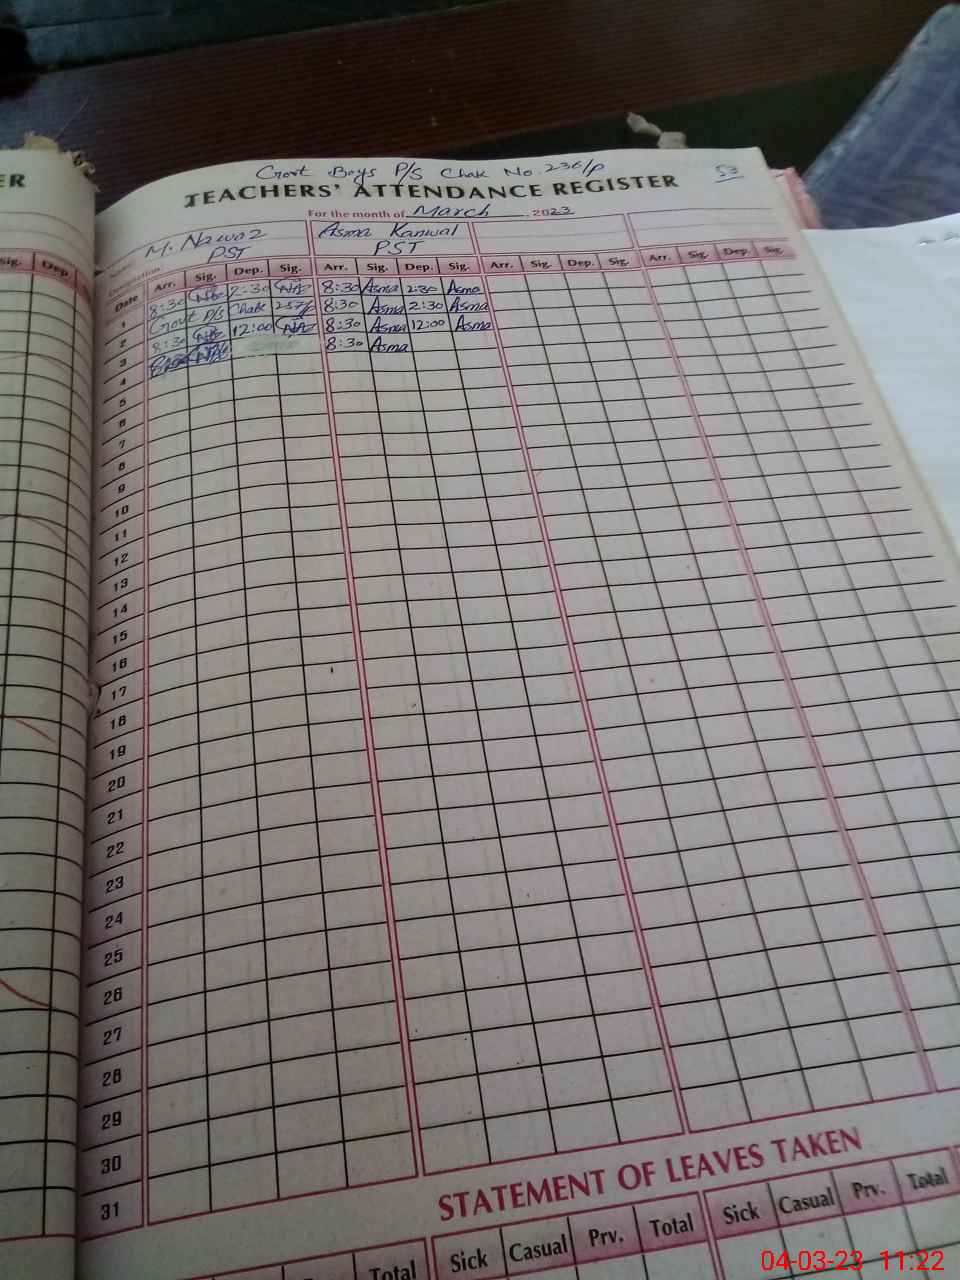 ER
Govt Boys P/S Chak No. 236/P 53
TEACHERS' ATTENDANCE REGISTER
For the month of March, 2023
M. Nawaz Asma Kanwal
PST PST
Sig. Dep.
Date Arr. Sig. Dep. Sig. Arr. Sig. Dep. Sig. Arr. Sig. Dep. Sig. Arr. Sig. Dep. Sig.
1 8:30 2:30 8:30 Asma 2:30 Asma
2 Govt P/S Chak 257/P 8:30 Asma 2:30 Asma
3 8:30 12:00 8:30 Asma 12:00 Asma
4 8:30 Asma
5
6
7
8
9
10
11
12
13
14
15
16
17
18
19
20
21
22
23
24
25
26
27
28
29
30
31
STATEMENT OF LEAVES TAKEN
Total Sick Casual Prv. Total Sick Casual Prv. Total
04-03-23 11:22